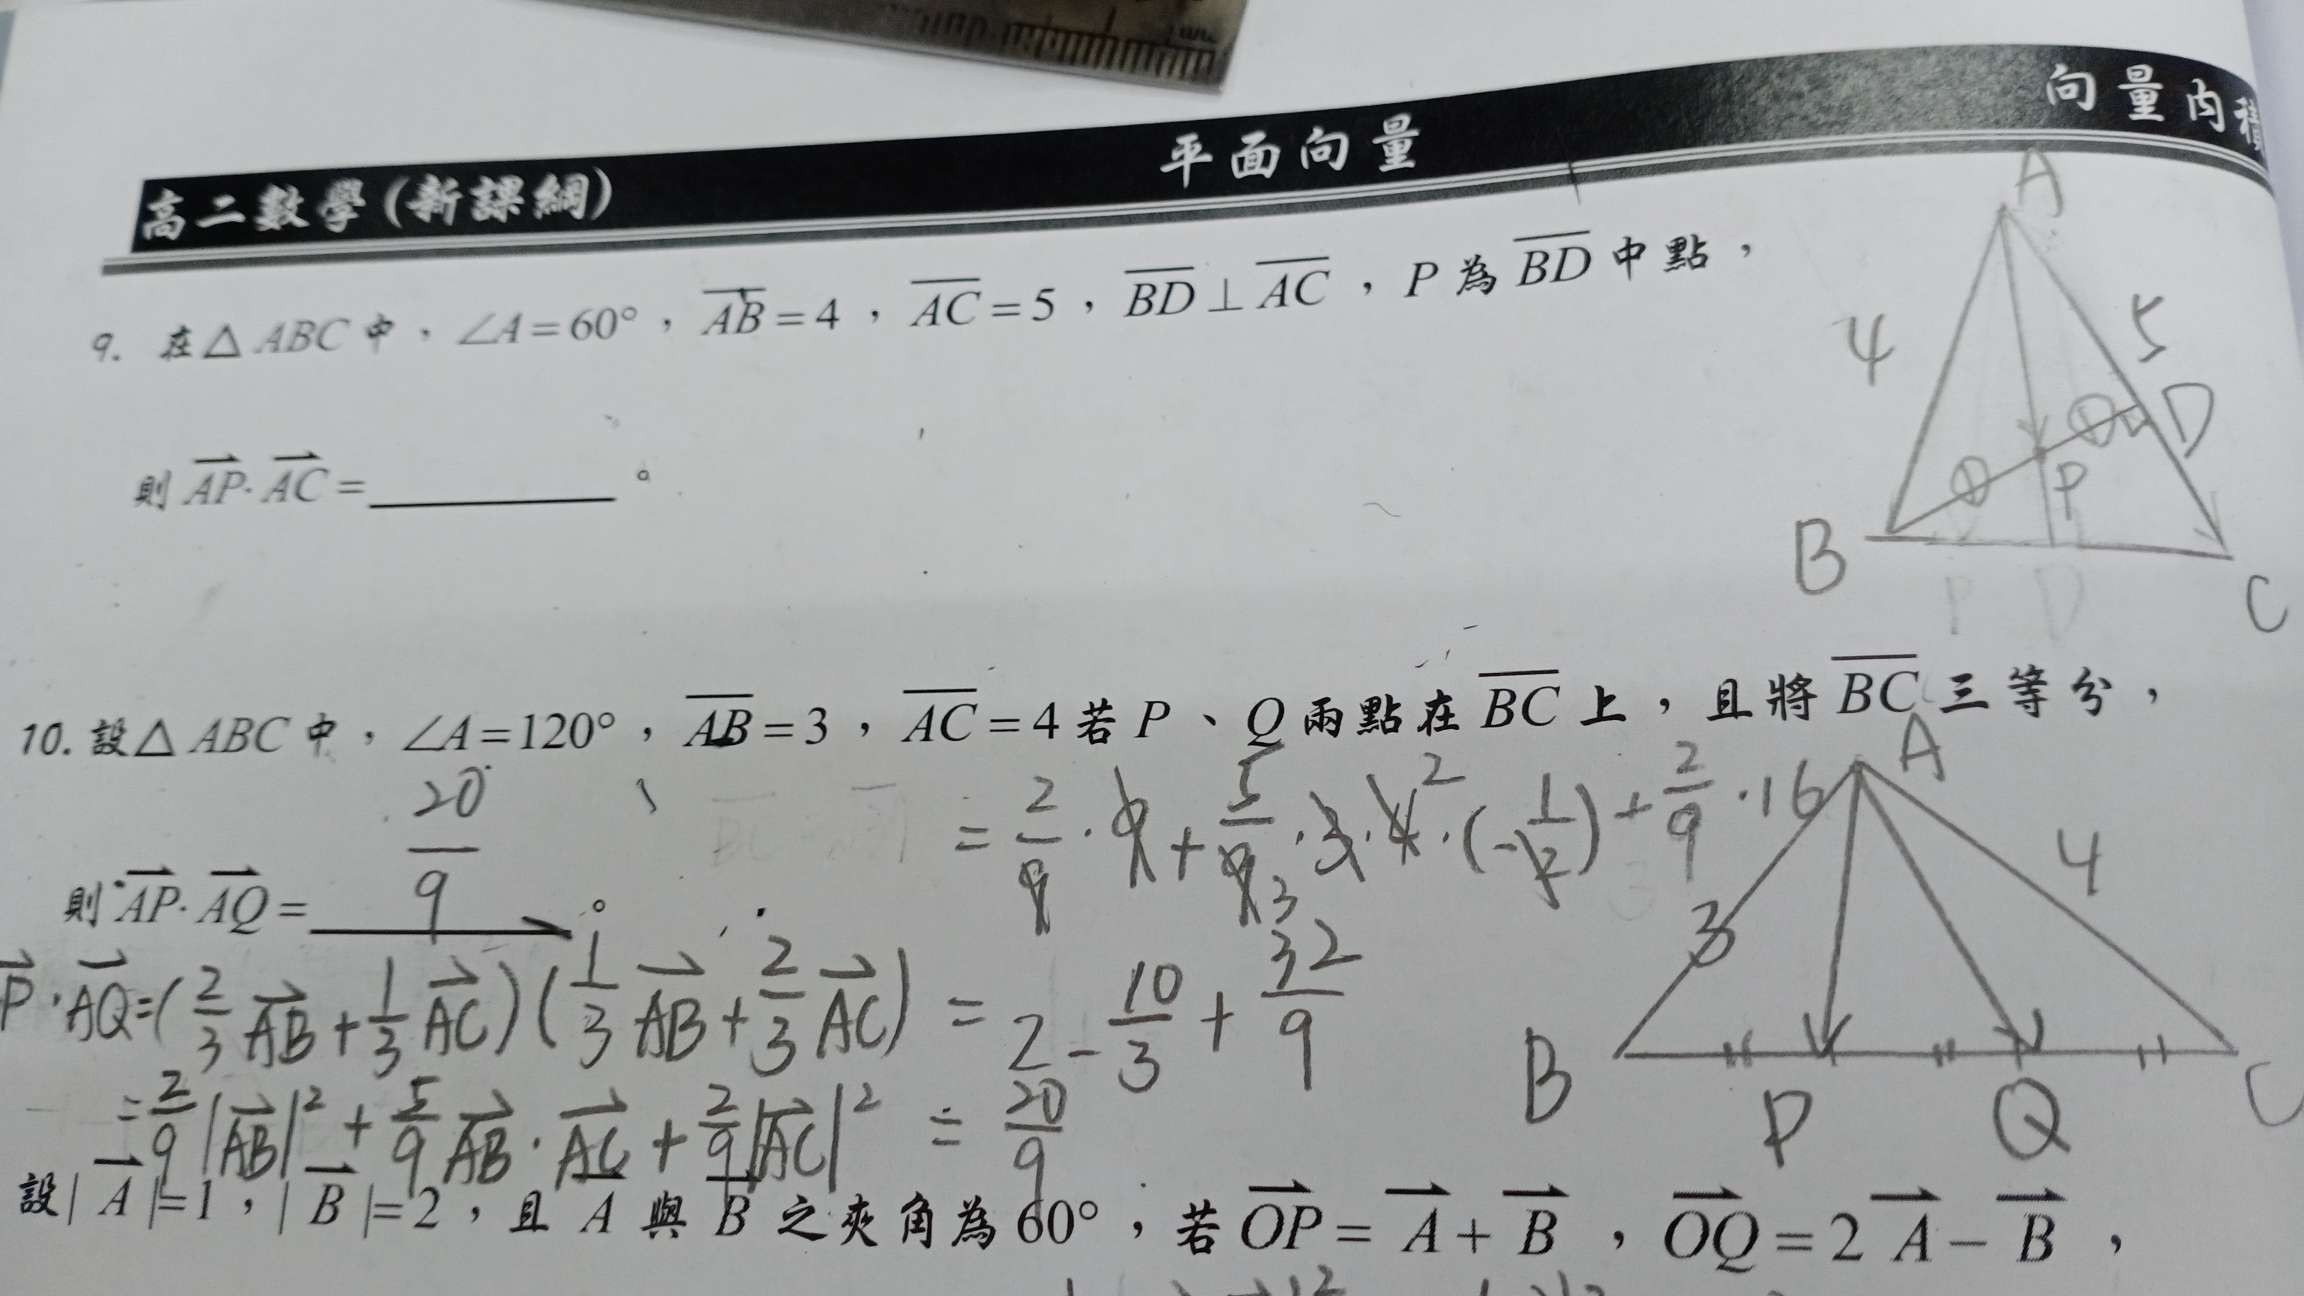 高二數學(新課綱) 平面向量 向量內積
9. 在△ABC中，∠A=60°，AB=4，AC=5，BD⊥AC，P為BD中點，
則 AP·AC=________。
A
4
5
D
① ①
P
B
C
10. 設△ABC中，∠A=120°，AB=3，AC=4若P、Q兩點在BC上，且將BC三等分，
則 AP·AQ= 20/9 。
= 2/9·9+5/9·3·4·(-1/2)+2/9·16
P·AQ=(2/3 AB+1/3 AC)(1/3 AB+2/3 AC) = 2-10/3+32/9
=2/9|AB|²+5/9 AB·AC+2/9|AC|² = 20/9
A
3
4
B
P
Q
C
設|A|=1，|B|=2，且A與B之夾角為60°，若OP=A+B，OQ=2A-B，